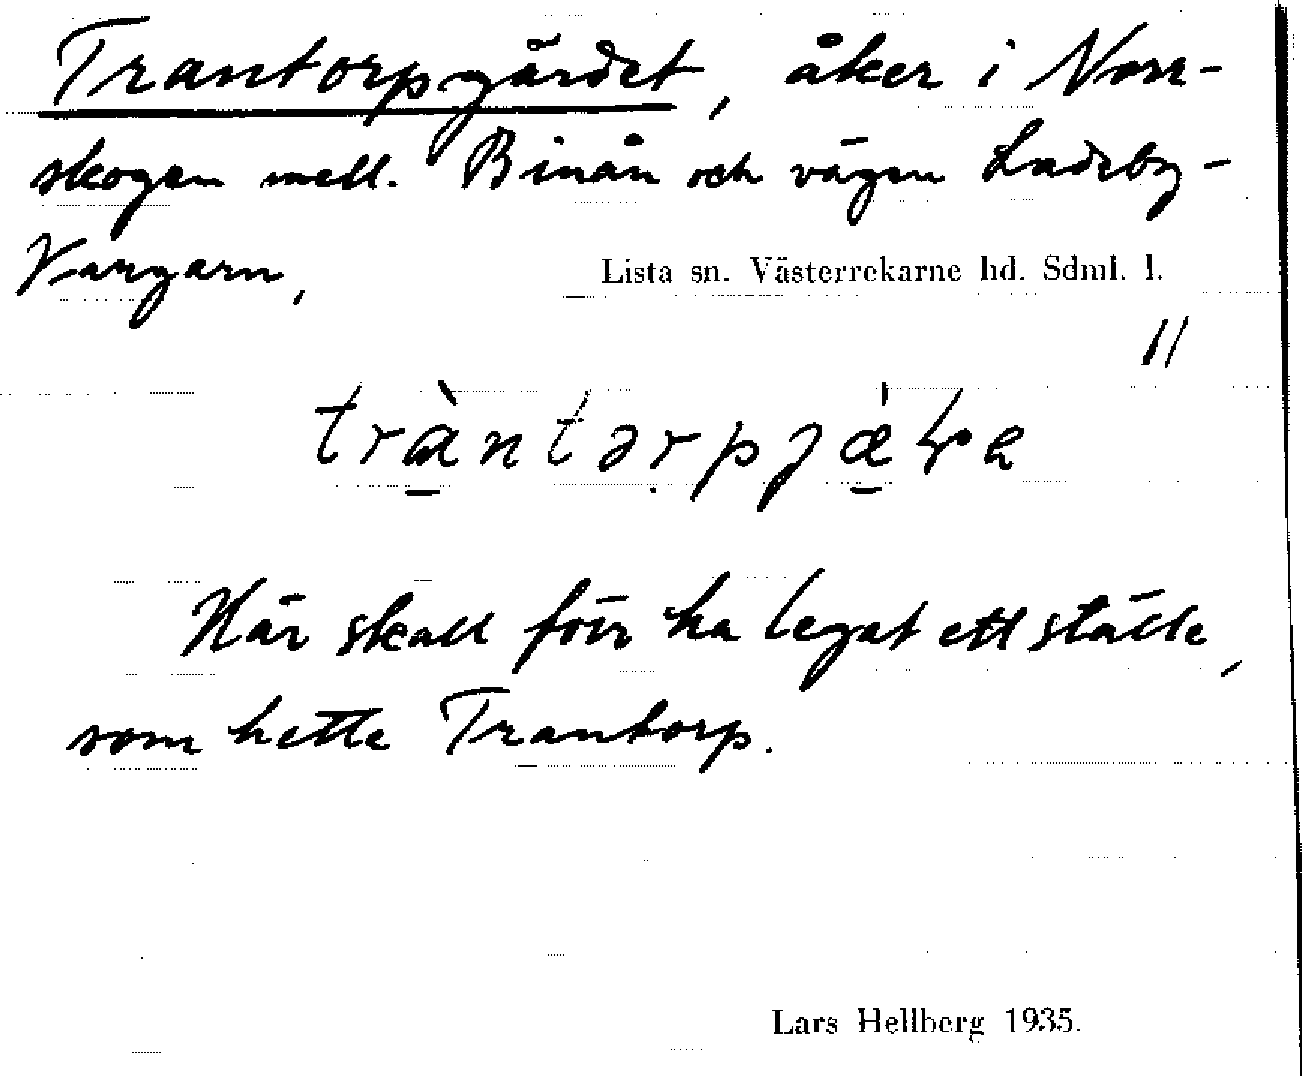 Trantorpgärdet, åker i Norr-
skogen mell. Binån och vägen Ladeby-
Vargarn,
Lista sn. Västerrekarne hd. Sdml. l.
11
Här skall förr ha legat ett ställe,
som hette Trantorp.
Lars Hellberg 1935.